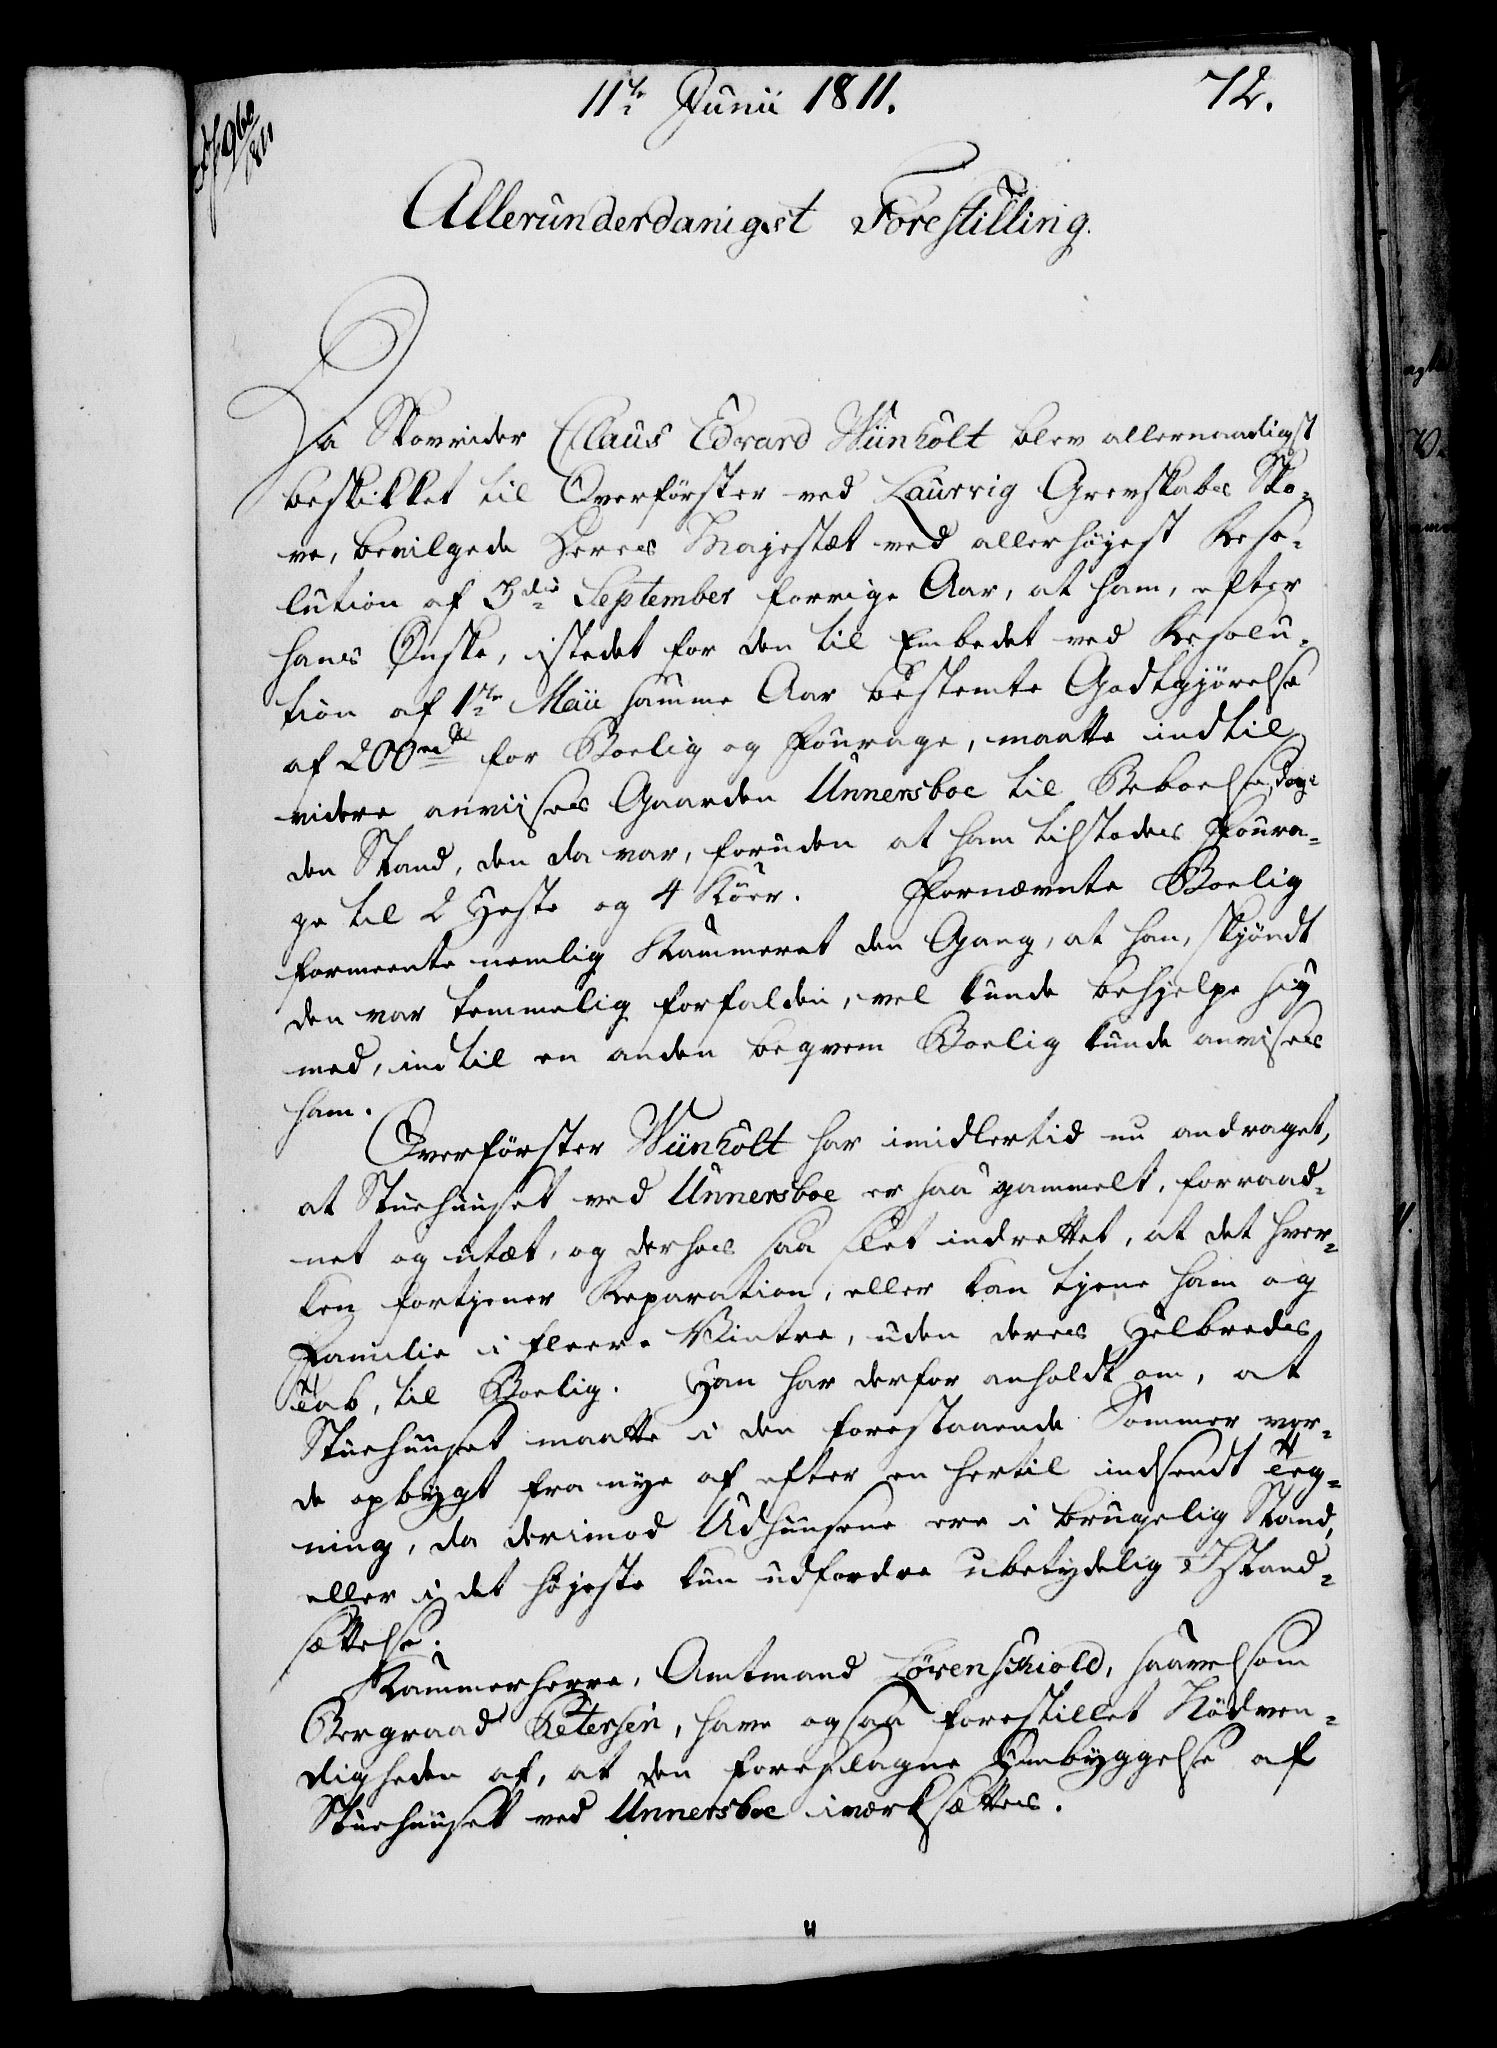 11te Junii 1811.
72.
960
1811
Allerunderdanigst Forestilling.
Da Skovrider Claus Edvard Wünholt blev allernaadigst
beskikket til Overförster ved Laurvig Grevskabs Sko-
ve, bevilgede Deres Majestæt ved allerhöjest Reso-
lution af 3die September forrige Aar, at ham, efter
hans Ønske, istedet for den til Embedet ved Resolu-
tion af 1te Maii samme Aar bestemte Godtgjörelse
af 200 rd for Boelig og Fourage, maatte indtil
videre anviises Gaarden Unnersboe til Beboelse i
den Stand, den da var, foruden at ham tilstodes Foura-
ge til 2 Heste og 4 Köer. Fornævnte Boelig
formeente nemlig Kammeret den Gang, at han, skjöndt
den var temmelig forfalden, vel kunde behjelpe sig
med, indtil en anden beqvem Boelig kunde anvises
ham.
Overförster Wünholt har imidlertid nu andraget,
at Stuehuuset ved Unnersboe er saa gammelt, forraad-
net og utæt, og derhos saa slet indrettet, at det hver-
ken fortjener Reparation, eller kan tjene ham og
Familie i fleere Vintre, uden deres Helbreds
Tab, til Boelig. Han har derfor anholdt om, at
Stuehuuset maatte i den forestaaende Sommer vor-
de opbygt fra nye af efter en hertil indsendt Teg-
ning, da derimod Udhuusene ere i brugelig Stand,
eller i det höjeste kun udfordre ubetydelig Istand-
sættelse.
Kammerherre, Amtmand Lövenskiold, saavelsom
Bergraad Petersen, have ogsaa forestillet Nödven-
digheden af, at den foreslagne Ombyggelse af
Stuehuuset ved Unnersboe iværksættes.